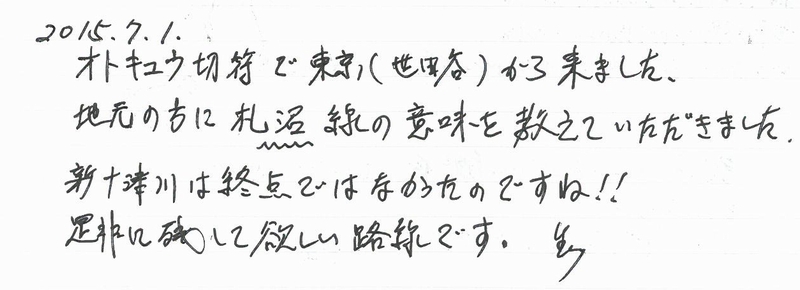 2015.7.1.
オトキュウ切符で東京(世田谷)から来ました。
地元の方に札沼線の意味を教えていただきました.
新十津川は終点ではなかったのですね!!
是非に残して欲しい路線です。